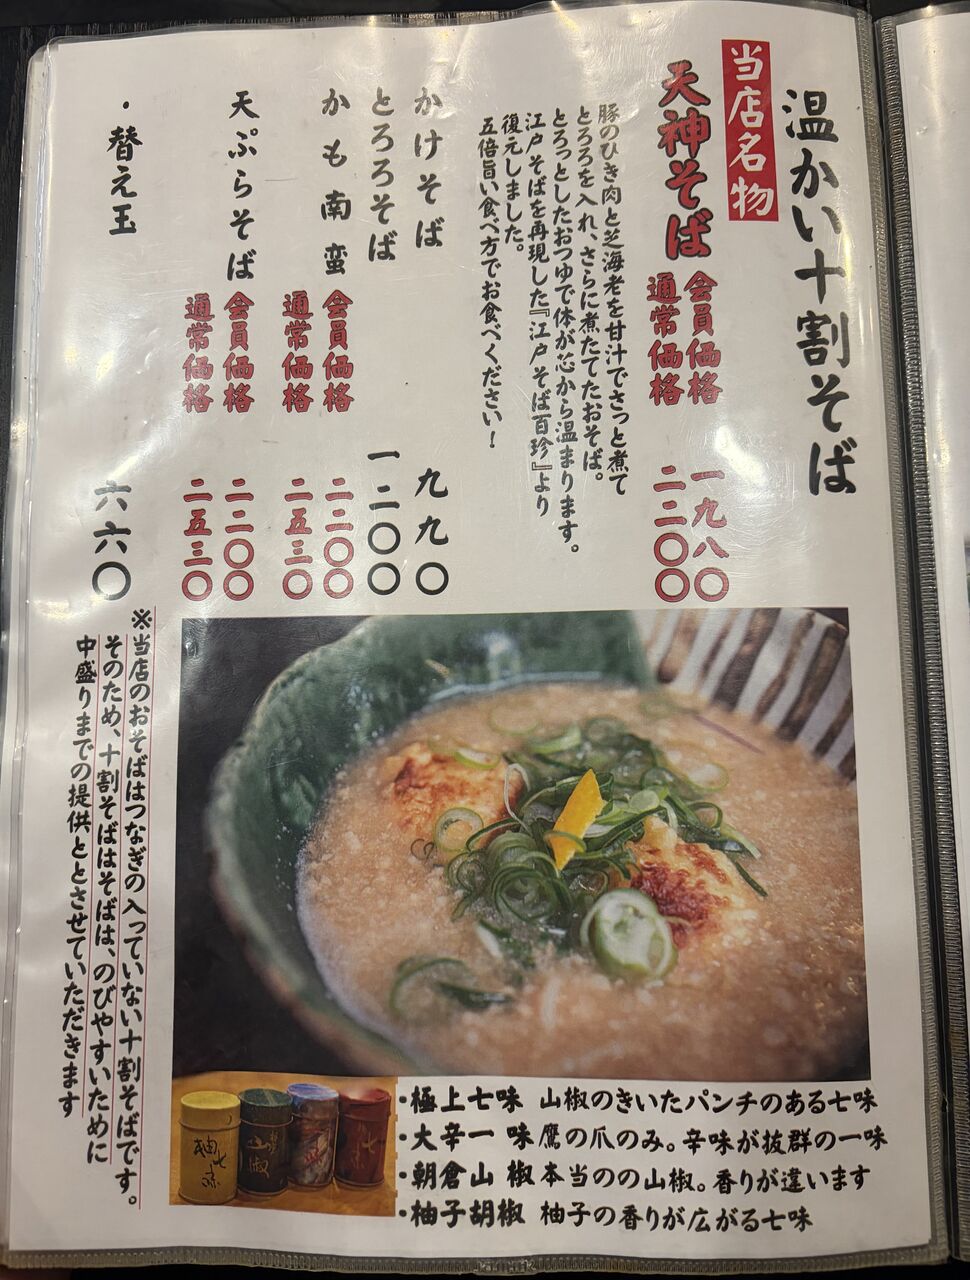 温かい十割そば
当店名物
天神そば
会員価格 一九八〇
通常価格 二二〇〇
豚のひき肉と芝海老を甘汁でさっと煮て
とろろを入れ、さらに煮たてたおそば。
とろっとしたおつゆで体が芯から温まります。
江戸そばを再現した『江戸そば百珍』より
復元しました。
五倍旨い食べ方でお食べください！
かけそば 九九〇
とろろそば 一二〇〇
かも南蛮 会員価格 二二〇〇
通常価格 二五三〇
天ぷらそば 会員価格 二二〇〇
通常価格 二五三〇
・替え玉 六六〇
※当店のおそばはつなぎの入っていない十割そばです。
そのため、十割そばはそばは、のびやすいために
中盛りまでの提供ととさせていただきます
・極上七味 山椒のきいたパンチのある七味
・大辛一味 鷹の爪のみ。辛味が抜群の一味
・朝倉山椒 本当のの山椒。香りが違います
・柚子胡椒 柚子の香りが広がる七味